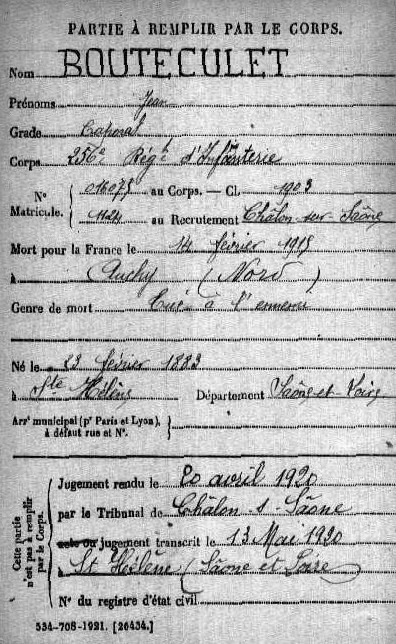 PARTIE À REMPLIR PAR LE CORPS.
Nom BOUTECULET
Prénoms Jean
Grade Caporal
Corps 256e Régt d'Infanterie
N° Matricule. { 016075 au Corps. — Cl. 1903
1124 au Recrutement Châlon-sur-Saône
Mort pour la France le 14 février 1915
à Auchy (Nord)
Genre de mort Tué à l'ennemi
Né le 23 février 1883
à Ste Hélène Département Saône-et-Loire
Arrt municipal (pr Paris et Lyon), à défaut rue et N°. }
Cette partie n'est pas à remplir par le Corps.
Jugement rendu le 20 avril 1920
par le Tribunal de Châlon s. Saône
acte ou jugement transcrit le 13 Mai 1920
à St Hélène (Saône et Loire)
N° du registre d'état civil
534-708-1921. [26434.]